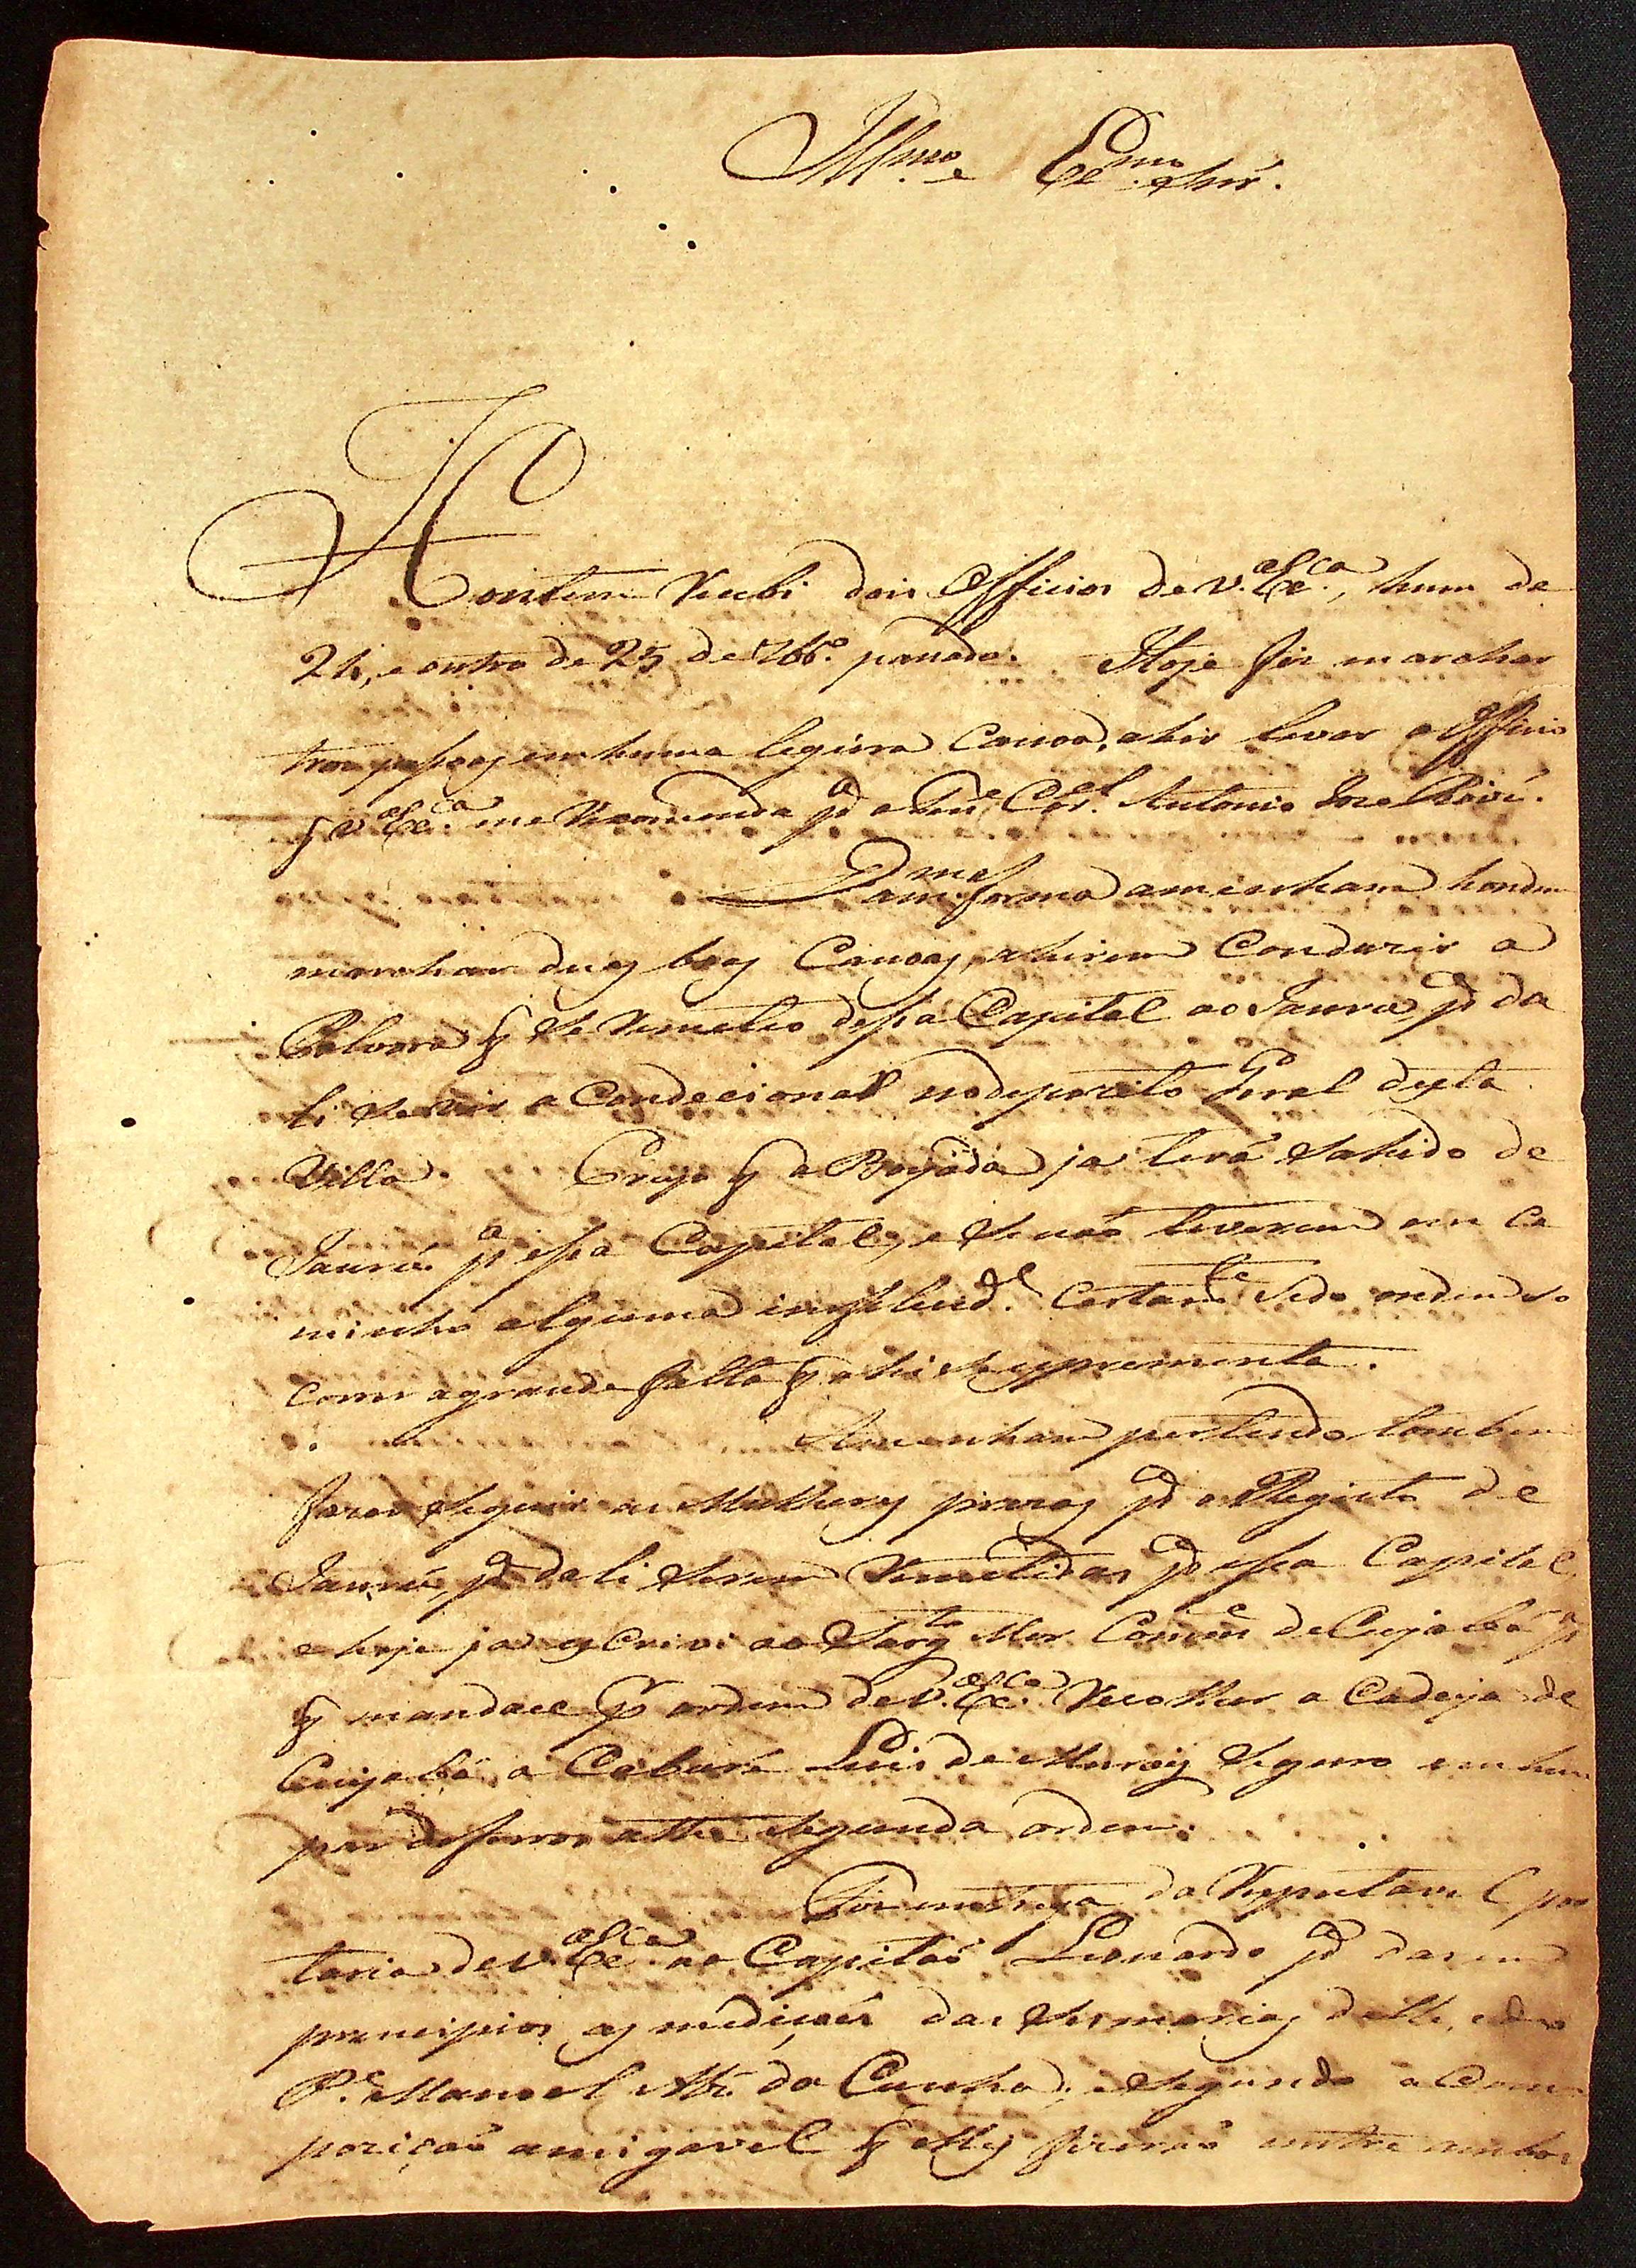 Illmo. e Exmo. Snr.
Hontem Recebi dois Officios de V. Exca., hum de
24, e outro de 25 de 7bro. passado. Hoje fiz marchar
tres pessoas em huma legeira Canoa, a hir levar o Officio
q V. Exca. me Recomenda pa o Tene. Corel. Antonio Joze
Da mesma forma amenham hondem
marchar duas boas Canoas, a hirem Conduzir a
Polvora q se Remeteo dessa Capital ao Jaurú pa da
li se vir a Condecionar no depozito Geral desta
Villa. Creyo q a Boyada ja terá sahido de
Jaurú pa essa Capital, e se não tiverem em ca
minho alguma Certamte. sedo
com a grande falta q ahi se exprementa.
Amenham pertendo tambem
fazer seguir as Mulheres prezas pa o Registo de
Jaurú, pa dali serem Remetidas pa essa Capital
e hoje ja escrevi ao Sargto. Mor Come. de Cuyabá pa
q mandace pr ordem de V. Exca. Recolher a Cadeya de
Cuyabá, o Caburé Luis de Moraes seguro em hum
par de ferros athe segunda ordem.
Fiz entrega da Respeitavel por
taria de V. Exca. ao Capitão Leonardo pa darem
principios as medições das Sesmarias delle, e do
Pe. Manoel da Cunha, e segundo a Com
pozição amigavel q elles fizerão entre ambos